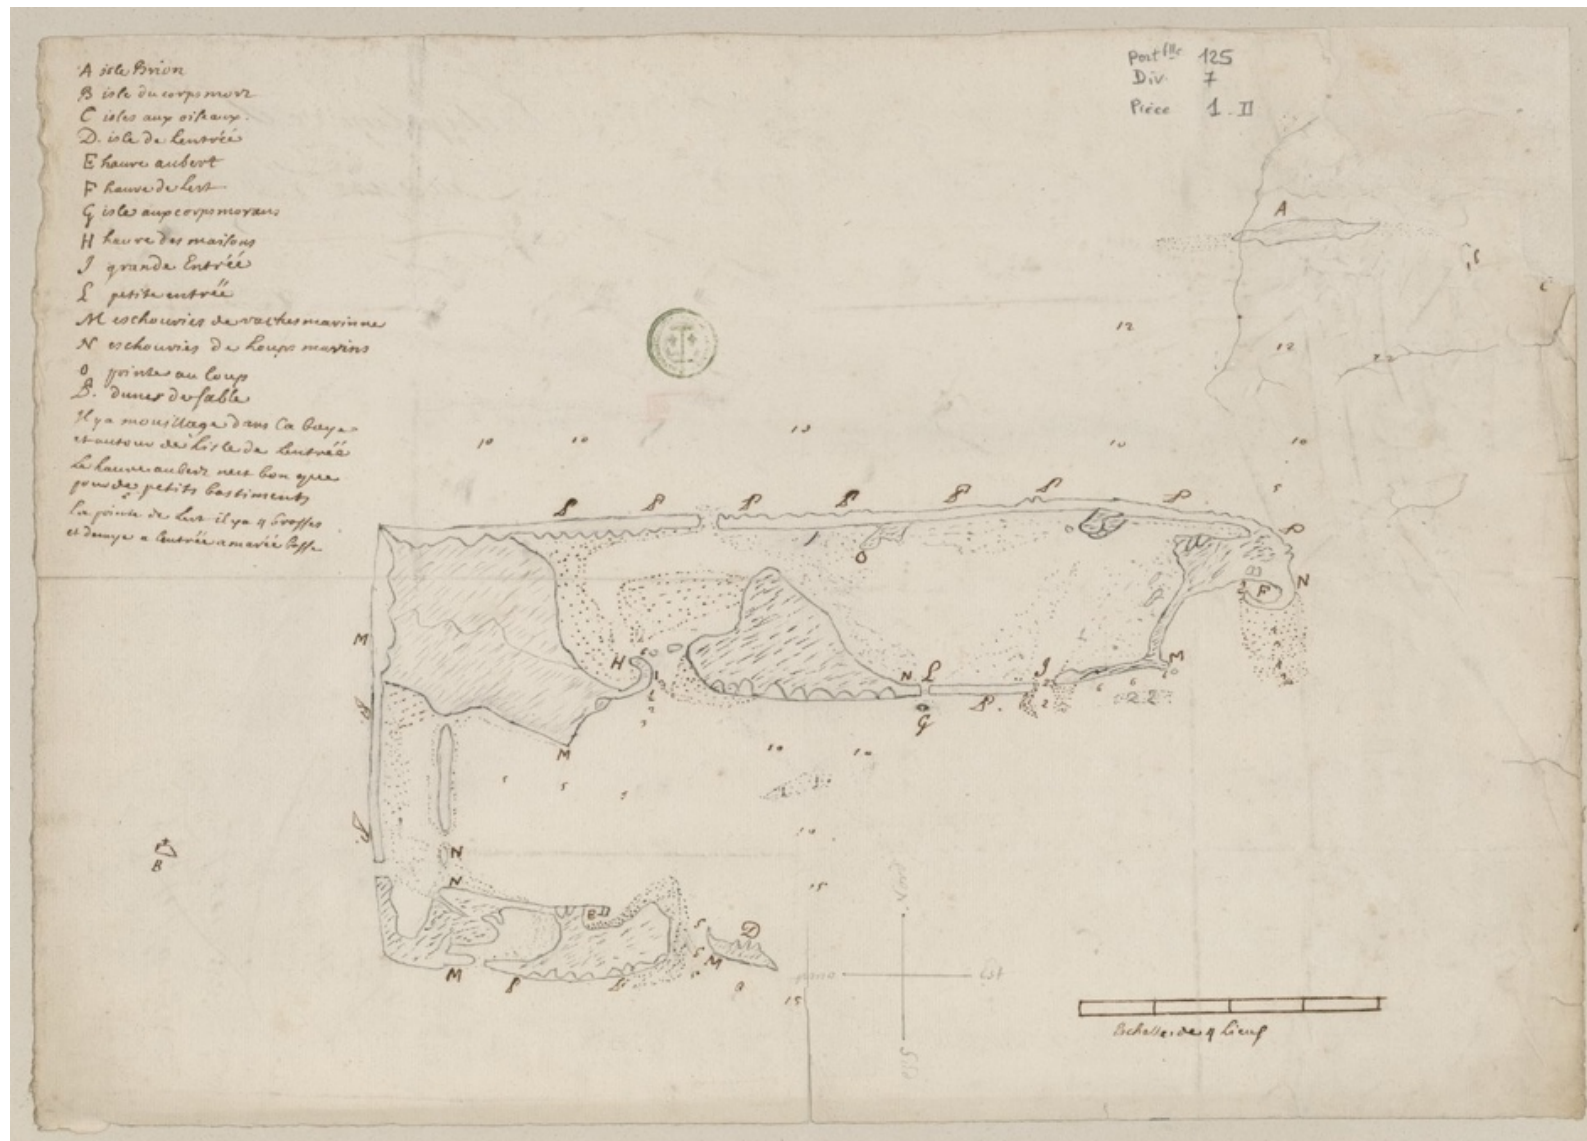 A isle Brion
B isle du corps mort
C isles aux oiseaux.
D. isle de lentréé
E havre aubert
F havre de lest
G isle aux corps morans
H havre des maisons
J grande Entréé
L petite entréé
M eschouries de vaches marinne
N eschouries de Loups marins
O pointe au loup
P. dunes de sable
Il y a mouillage dans la baye
et autour de lisle de lentréé
Le havre aubert nest bon que
pour de petits bastiments
La pointe de lest il y a 4 brasses
et demye a lentrée a maréé basse
Port flle 125
Div. 7
Pièce 1. II
A
12
12
22
10
10
10
10
10
5
P P P P P P P P
O
N
F
M
M
H
N L
J
G
P.
6 6
2
M
10 10
5 5
10
P
P
N
N
B
E
15
5
5
5
D
M
M
P P
15
nord
Est
Echelle de 4 Lieus